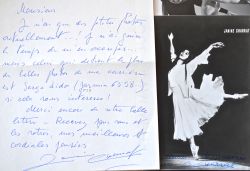 Monsieur
Je n'ai que des petites photos
actuellement...! Je n'ai jamais
le temps de m'en occuper...
mais celui qui détient le plus
de belles photos de ma carrière
est Serge Lido
si cela vous intéresse!
Merci encore de votre belle
lettre - Recevez pour vous et
les vôtres mes meilleures et
cordiales pensées
JANINE CHARRAT